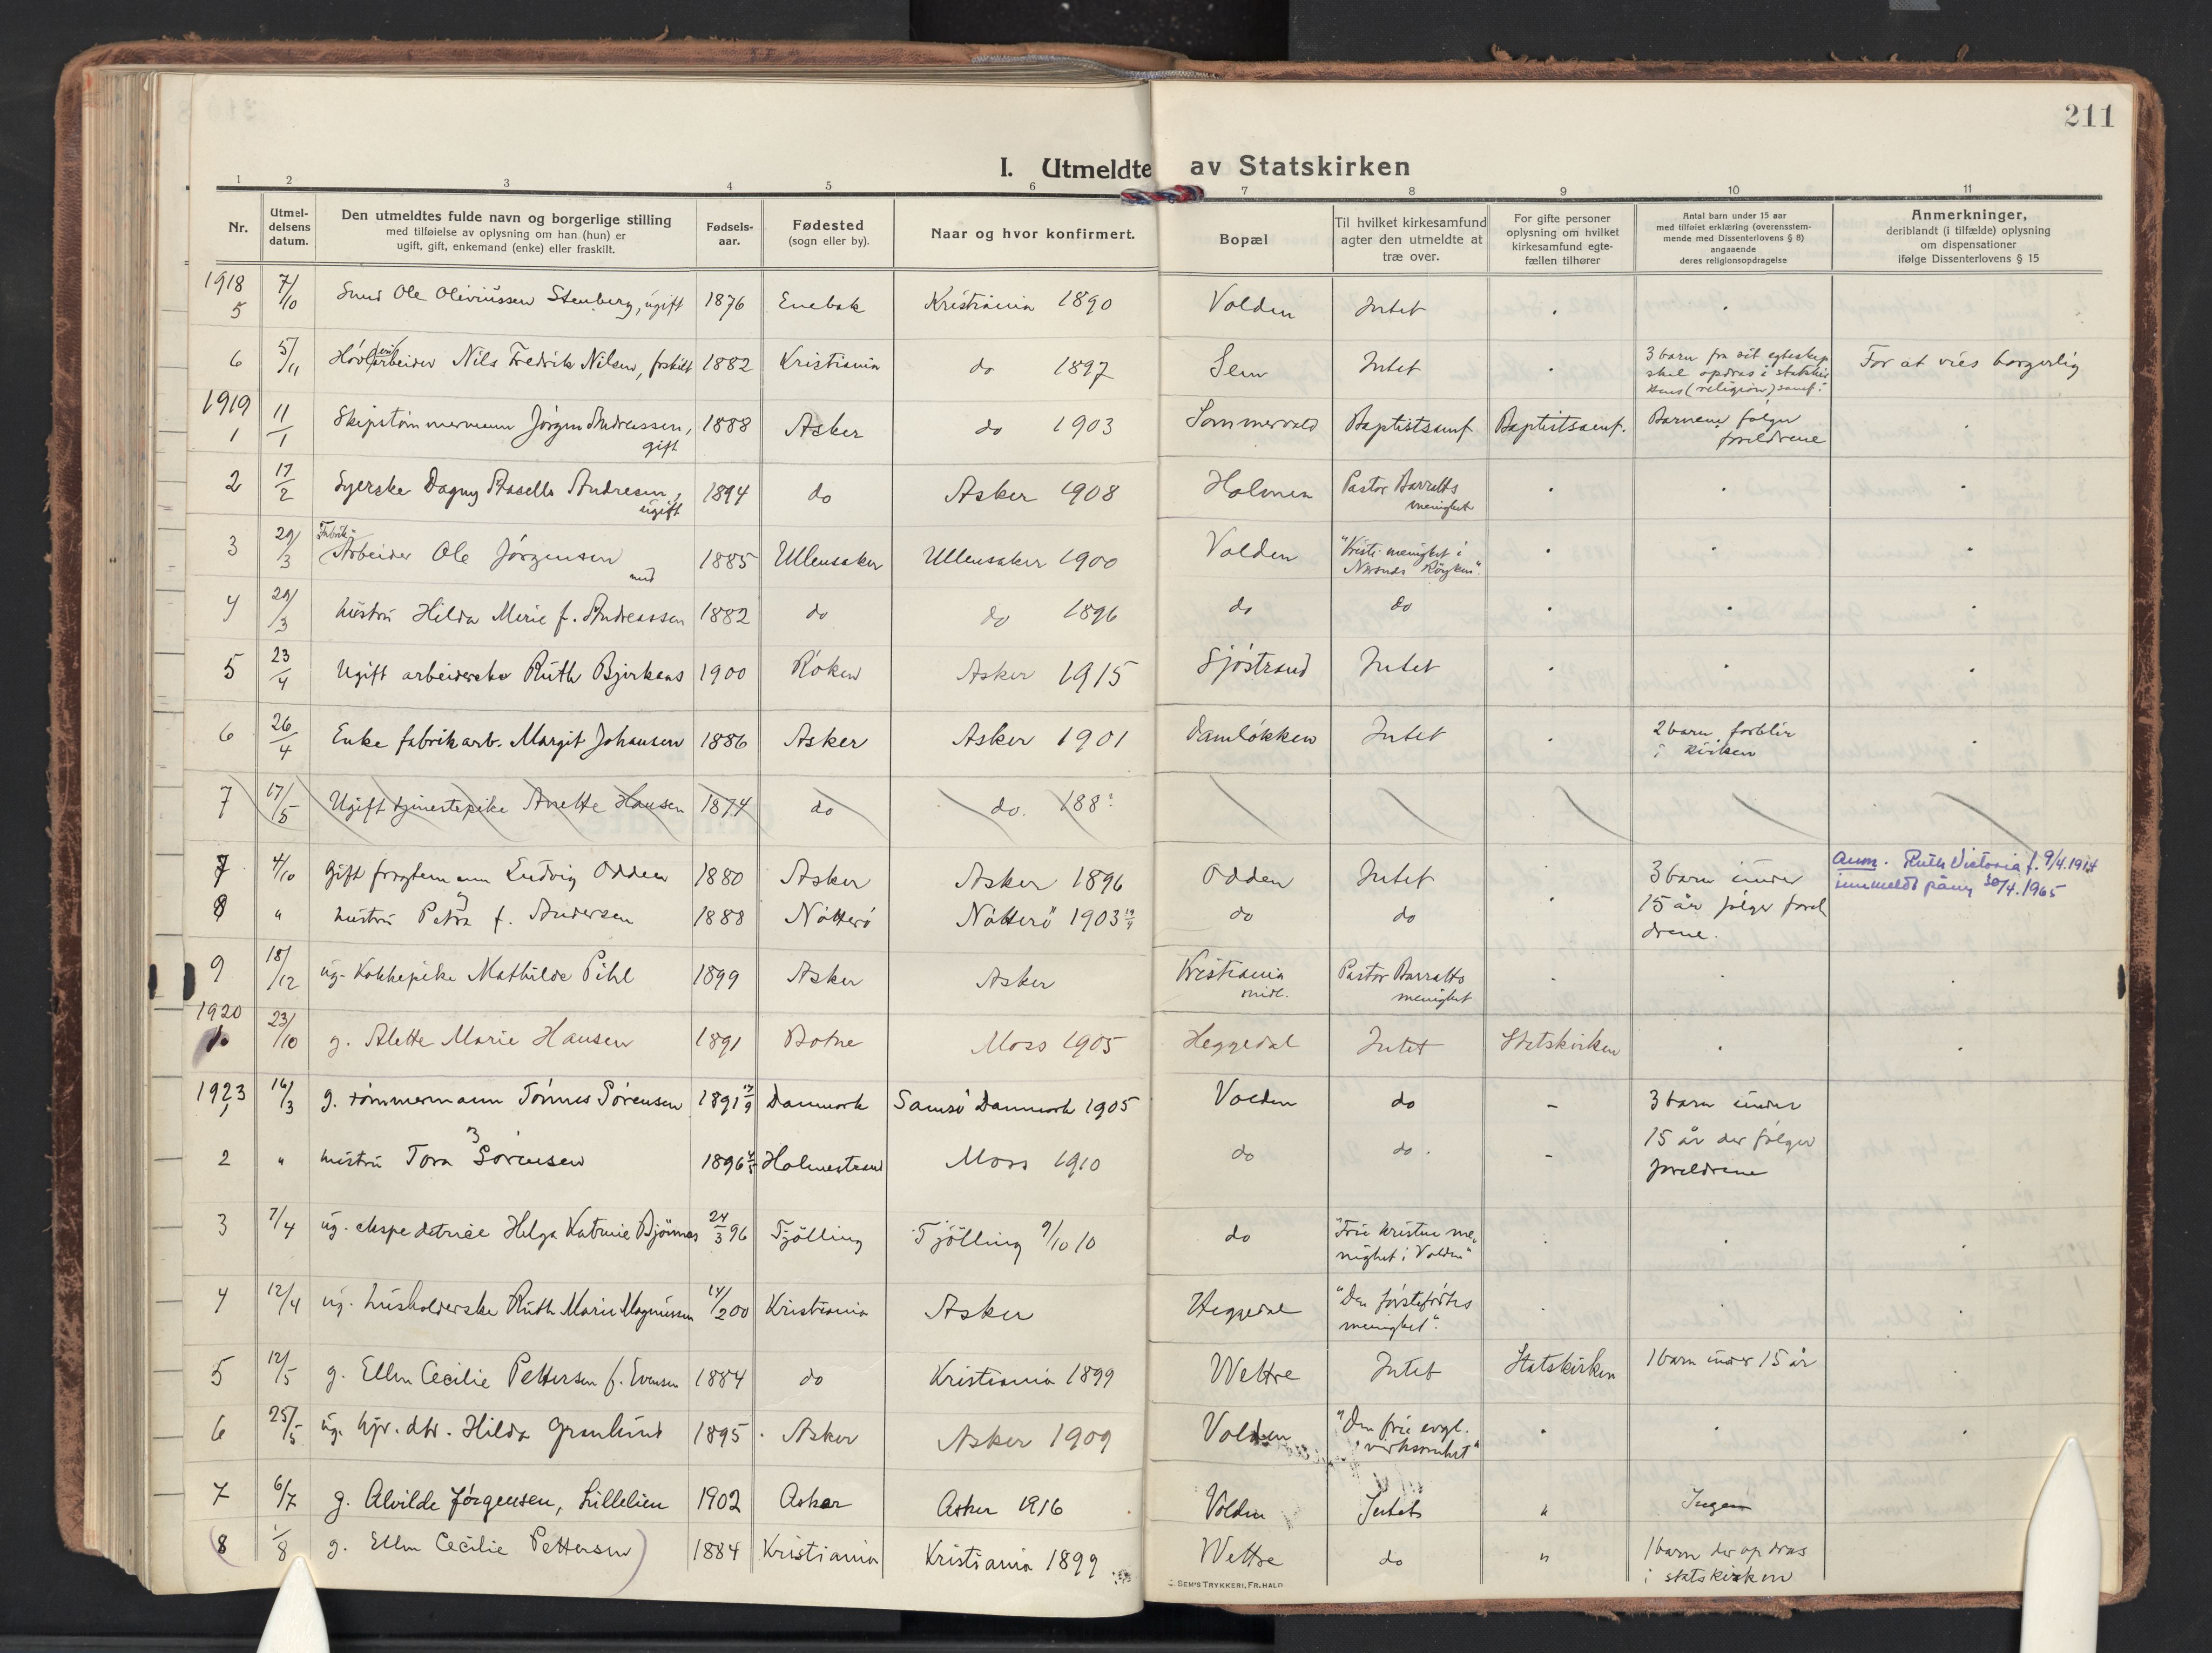 211
I. Utmeldte av Statskirken
1 2 3 4 5 6 7 8 9 10 11
Nr.
Utmel-
delsens
datum.
Den utmeldtes fulde navn og borgerlige stilling
med tilføielse av oplysning om han (hun) er
ugift, gift, enkemand (enke) eller fraskilt.
Fødsels-
aar.
Fødested
(sogn eller by).
Naar og hvor konfirmert.
Bopæl
Til hvilket kirkesamfund
agter den utmeldte at
træ over.
For gifte personer
oplysning om hvilket
kirkesamfund egte-
fællen tilhører
Antal barn under 15 aar
med tilføiet erklæring (overensstem-
mende med Dissenterlovens § 8)
angaaende
deres religionsopdragelse
Anmerkninger,
deriblandt (i tilfælde) oplysning
om dispensationer
ifølge Dissenterlovens § 15
1918
5 7/10 Smed Ole Oliviussen Stenberg, ugift 1876 Enebak Kristiania 1890 Volden Intet
6 5/11 Høvleriarbeider Nils Fredrik Nilsen, fraskilt 1882 Kristiania do 1897 Sem Intet 3 barn fra sit egteskap
skal opdras i statskir
kens (religion) samf. For at vies borgerlig
1919
1 11/1 Skipstømmermann Jørgen Andreassen,
gift 1888 Asker do 1903 Sommervold Baptistsamf Baptistsamf. Barnene følger
foreldrene
2 17/2 Syerske Dagny Andresen,
ugift 1894 do Asker 1908 Holmen Pastor Barratts
menighet
3 29/3 Fabrik-
Arbeider Ole Jørgensen
med 1885 Ullensaker Ullensaker 1900 Volden "Kristi menighet i
Nærsnes Røyken".
4 29/3 hustru Hilda Marie f. Andreassen 1882 do do 1896 do do
5 23/4 Ugift arbeiderske Ruth Bjerkens 1900 Røken Asker 1915 Sjøstrand Intet
6 26/4 Enke fabrikarb. Margit Johansen 1886 Asker Asker 1901 Damløkken Intet 2 barn forblir
i kirken
7 17/5 Ugift tjenestepike Anette Hansen 1874 do do. 188?
7 4/10 Gift fragtemann Ludvig Odden 1880 Asker Asker 1896 Odden Intet 3 barn under Anm. Ruth Victoria f. 9/4.1914
innmeldt påny 30/4.1965
8 " hustru Petra f. Andersen 1888 Nøtterö Nøtterö 1903 do do 15 år følger forel
drene.
9 18/12 ug. Kokkepike Mathilde Pihl 1899 Asker Asker Kristiania
midl. Pastor Barratts
menighet
1920
1. 23/10 g. Alette Marie Hansen 1891 Botne Moss 1905 Heggedal Intet Statskirken
1923
1 16/3 g. tømmermann Tönnes Sörensen 1891 Danmark Samsö Danmark 1905 Volden do – 3 barn under
2 " hustru Tora Sörensen 1896 Holmestrand Moss 1910 do do. – 15 år der følger
foreldrene
3 7/4 ug. ekspeditrice Helga Katrine Björnnes 24/3 96 Tjølling Tjölling 9/10 10 do "Frie kristne me-
nighet i Volden"
4 12/4 ug. husholderske Ruth Marie Magnussen 14/2 00 Kristiania Asker Heggedal "Den førstefödtes
menighet".
5 12/5 g. Ellen Cecilie Pettersen f. Evensen 1884 do Kristiania 1899 Wettre Intet Statskirken 1 barn under 15 år
6 25/5 ug. hjv. dtr. Hilda Granlund 1895 Asker Asker 1909 Volden "Den frie evgl.
virksomhet"
7 6/7 g. Alvilde Jørgensen, Lillelien 1902 Asker Asker 1916 Volden Intet " Ingen
(8 1/8 g. Ellen Cecilie Pettersen) 1884 Kristiania Kristiania 1899 Wettre do " 1 barn der opdras
i statskirken
SEM'S TRYKKERI, FR. HALD